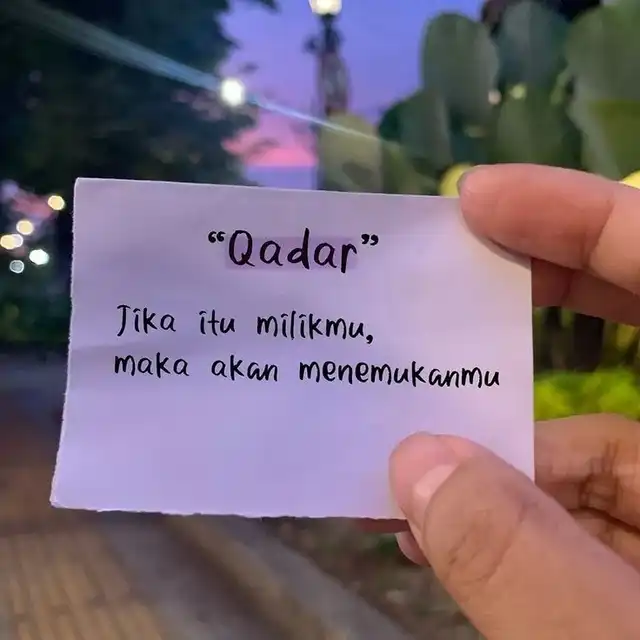 “Qadar”
Jika itu milikmu,
maka akan menemukanmu